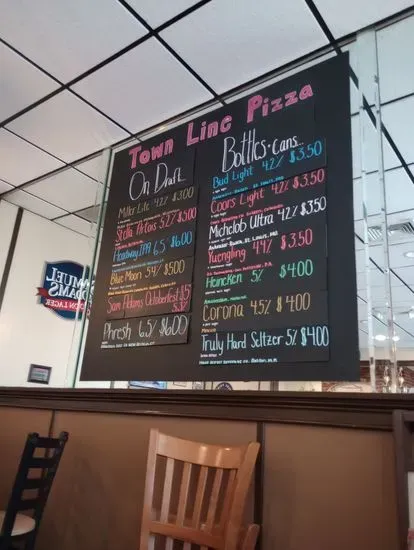 Town Line Pizza
On Draft
Miller Lite 4.2% $3.00
Stella Artois 5.2% $5.00
Headway IPA 6.5% $6.00
Blue Moon 5.4% $5.00
Sam Adams Octoberfest $5 5.3%
Phresh 6.5% $6.00
Bottles + cans...
Bud Light 4.2% $3.50
Coors Light 4.2% $3.50
Michelob Ultra 4.2% $3.50
Yuengling 4.4% $3.50
Heineken 5% $4.00
Corona 4.5% $4.00
Truly Hard Seltzer 5% $4.00
SAMUEL
ADAMS